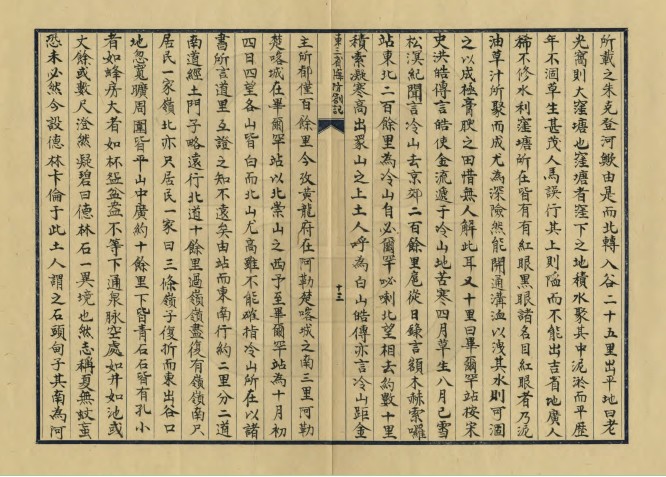 所載之朱克登河歟由是而北轉入谷二十五里出平地曰老
光窩則大窪塘也窪塘者窪下之地積水聚其中泥淤而平歷
年不涸草生甚茂人馬誤行其上則陷而不能出吉省地廣人
稀不修水利窪塘所在皆有有紅眼黑眼諸名目紅眼者乃泥
油草汁所聚而成尤為深險然能開通溝洫以洩其水則可涸
之以成極膏腴之田惜無人解此耳又十里曰畢爾罕站按宋
史洪皓傳言皓使金流遞于冷山地苦寒四月草生八月已雪
松漠紀聞言冷山去京郊二百餘里扈從日錄言額木赫索囉
站東北二百餘里為冷山自必爾罕必喇北望相去約數十里
積素凝寒高出眾山之上土人呼為白山皓傳亦言冷山距金
東三省輿地劄記
十三
主所都僅百餘里今攷黃龍府在阿勒楚喀城之南三里阿勒
楚喀城在畢爾罕站以北景山之西予至畢爾罕站為十月初
四日四望各山皆白而北山尤高雖不能確指冷山所在以諸
書所言道里互證之知不遠矣由站而東南行約二里分二道
南道經土門子略遠行北道十餘里過嶺嶺盡復有嶺嶺南只
居民一家嶺北亦只居民一家曰三條嶺子復折而東出谷口
地忽寬曠周圍皆平山中廣約十餘里下皆青石石皆有孔小
者如蜂房大者如杯盌盆盎不等下通泉脈空處如井如池或
丈餘或數尺澄然凝碧曰德林石一異境也然志稱夏無蚊蝱
恐未必然今設德林卡倫于此土人謂之石頭甸子其南為阿